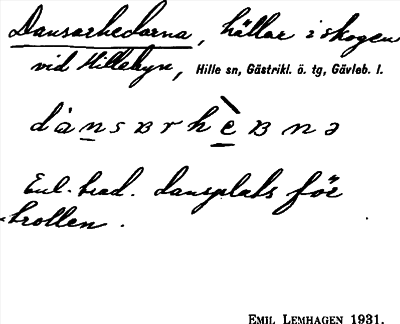 Dansarhedarna, hällar i skogen
vid Hillebyn, Hille sn, Gästrikl. ö. tg, Gävleb. l.
dansʀrhèʀnə
Enl. trad. dansplats för
trollen.
EMIL LEMHAGEN 1931.